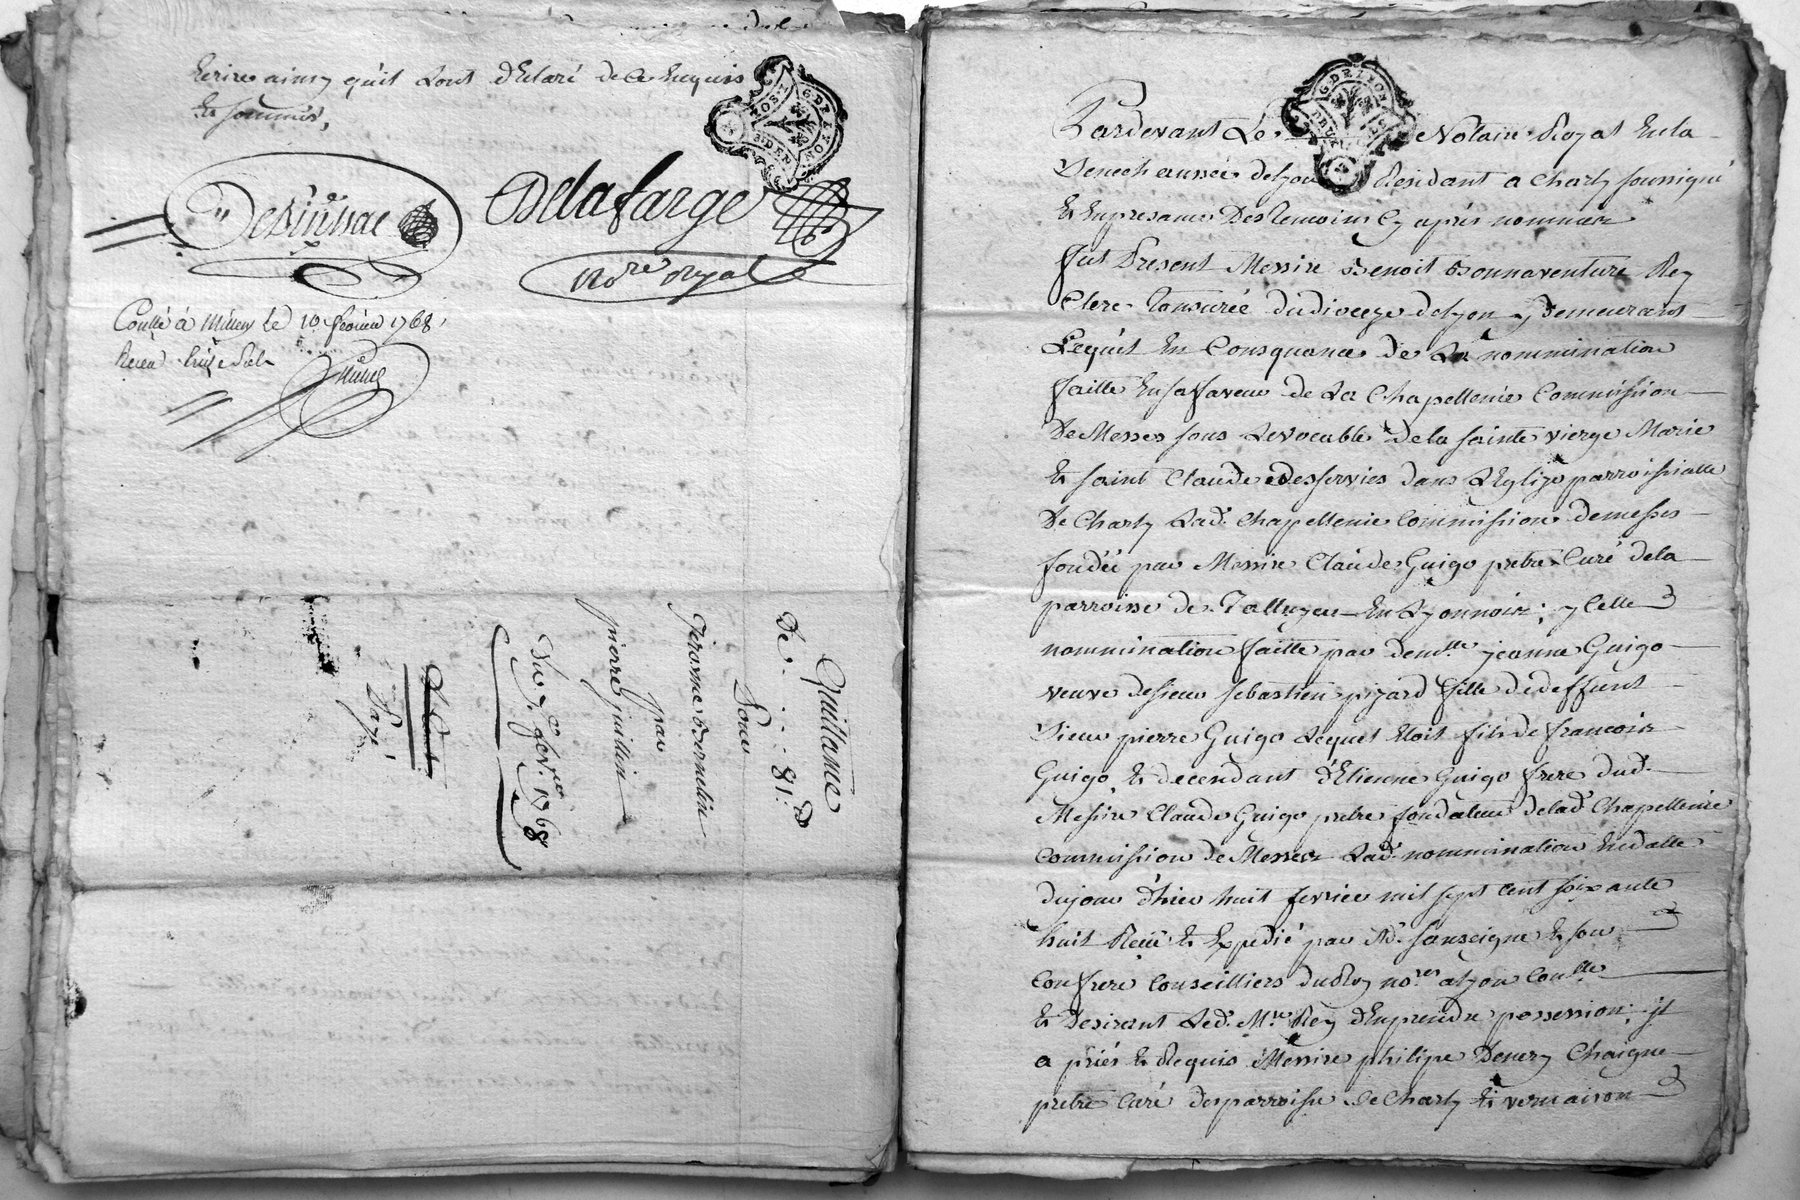 Ecrire ainsy qu'il sont déclaré de ce enquis
et sommés,
Delafarge
Nore Royal
Conllé à Millery le 10 fevrier 1768
Receu treize sols
Quittance
De . . . . 81:
Pour
Jerosme Bernelin
par
pierre juillin
Du 7e fevrier 1768
Page
G. DE LYON
Pardevant Le Notaire Royal En la
Senechaussée de Lyon Residant a Charly soussigné
Et En presance Des temoins Cy après nomméz
fut Present Messire Benoit Bonnaventure Rey
Clerc Tonsurée du dioceze de Lyon y Demeurant
Lequel En Consquance de La nommination
faitte En sa faveur de La Chapellenie Commission
De Messes sous Le vocable de la sainte vierge Marie
Et saint Claude desservies dans L'Eglize parroissialle
De Charly Lad. Chapellenie Commission de messes
fondée par Messire Claude Guigo pretre Curé de la
parroisse de Talluyer En Lyonnoix; ycelle
nommination faitte par demlle jeanne Guigo
veuve de sieur sebastien pizard fille de deffunt
Sieur pierre Guigo Lequel Etoit fils de francois
Guigo, Et decendant d'Etienne Guigo frere dud.
Messire Claude Guigo pretre fondateur de lad. Chapellenie
Commission de Messes Lad. nommination En datte
du jour d'hier huit fevrier mil sept cent soixante
huit Receüe Et Expedié par Me. sanseigne Et son
Confrere Conseilliers du Roy nores a Lyon Conlle
Et Desirant Led. Mre Rey d'En prendre possession; il
a priés Et Requis Messire philipe Chaigne
pretre Curé des parroisse de Charly Et vernaison